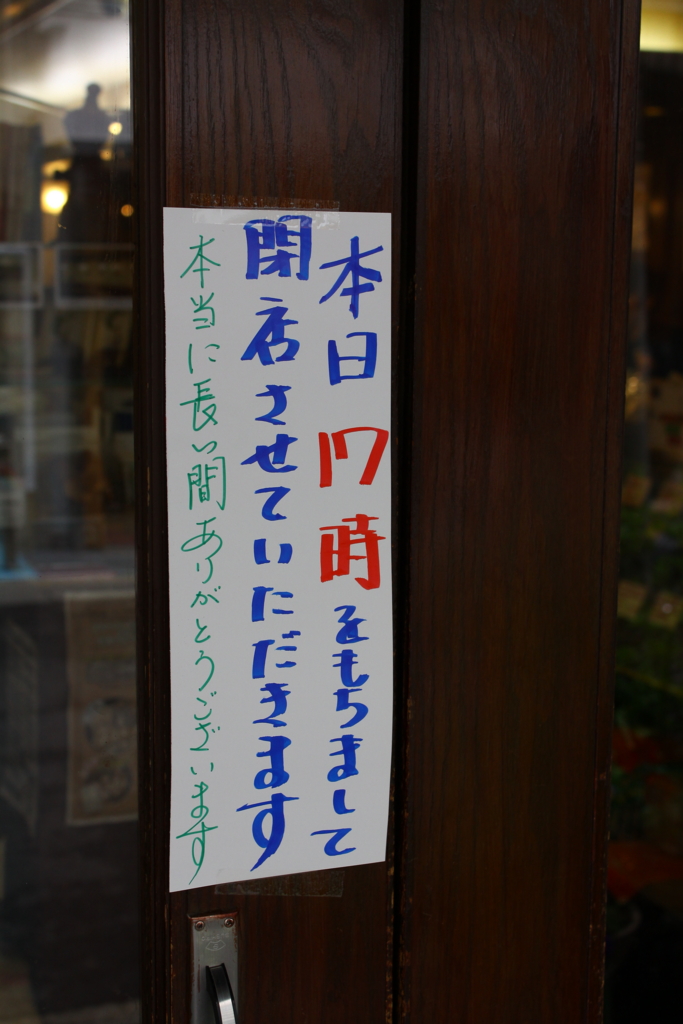 本日17時をもちまして
閉店させていただきます
本当に長い間ありがとうございます